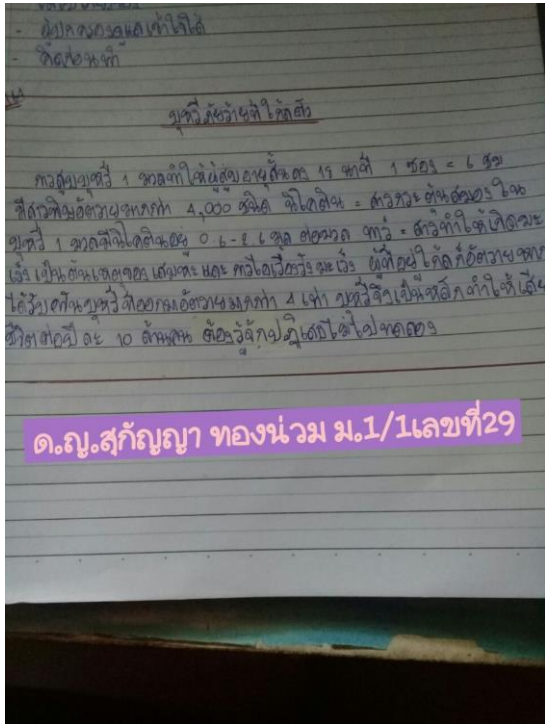 - คิดก่อนทำ
บุหรี่ภัยร้ายที่ใกล้ตัว
การสูบบุหรี่ 1 มวลทำให้ผู้สูบอายุสั้นลง นาที 1 ซอง = 6 ชม
มีสารพิษอันตรายมากกว่า 4,000 ชนิด นิโคติน = สารกระตุ้นสมอง ใน
บุหรี่ 1 มวลมีนิโคตินอยู่ ต่อมวล ทาร์ = สารทำให้เกิดมะ
เร็ง เป็นต้นเหตุของเสมหะและ การไอเรื้อรัง มะเร็ง ผู้ที่อยู่ใกล้ก็อันตราย
ได้รับควันบุหรี่ อันตรายมากกว่า 4 เท่า บุหรี่จึงเป็นหลักทำให้เสีย
ชีวิตต่อปีละ 10 ล้านคน ต้องรู้จักปฏิเสธไม่ไปทดลอง
ด.ญ.สุกัญญา ทองน่วม ม.1/1เลขที่29